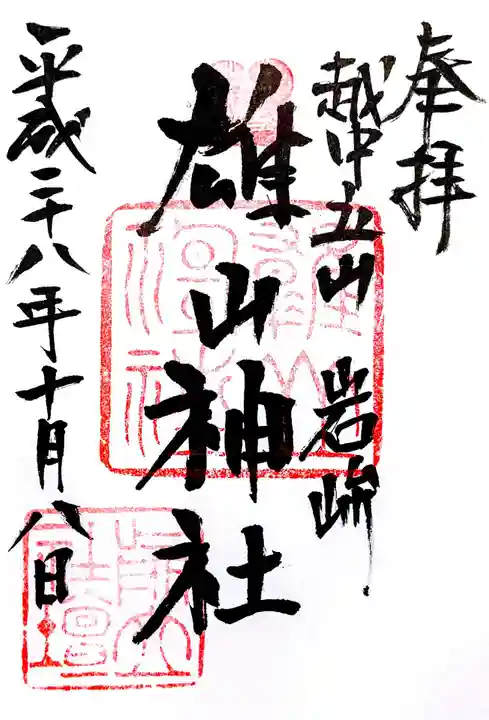 奉拝
越中立山 岩峅
雄山神社
平成二十八年十月八日